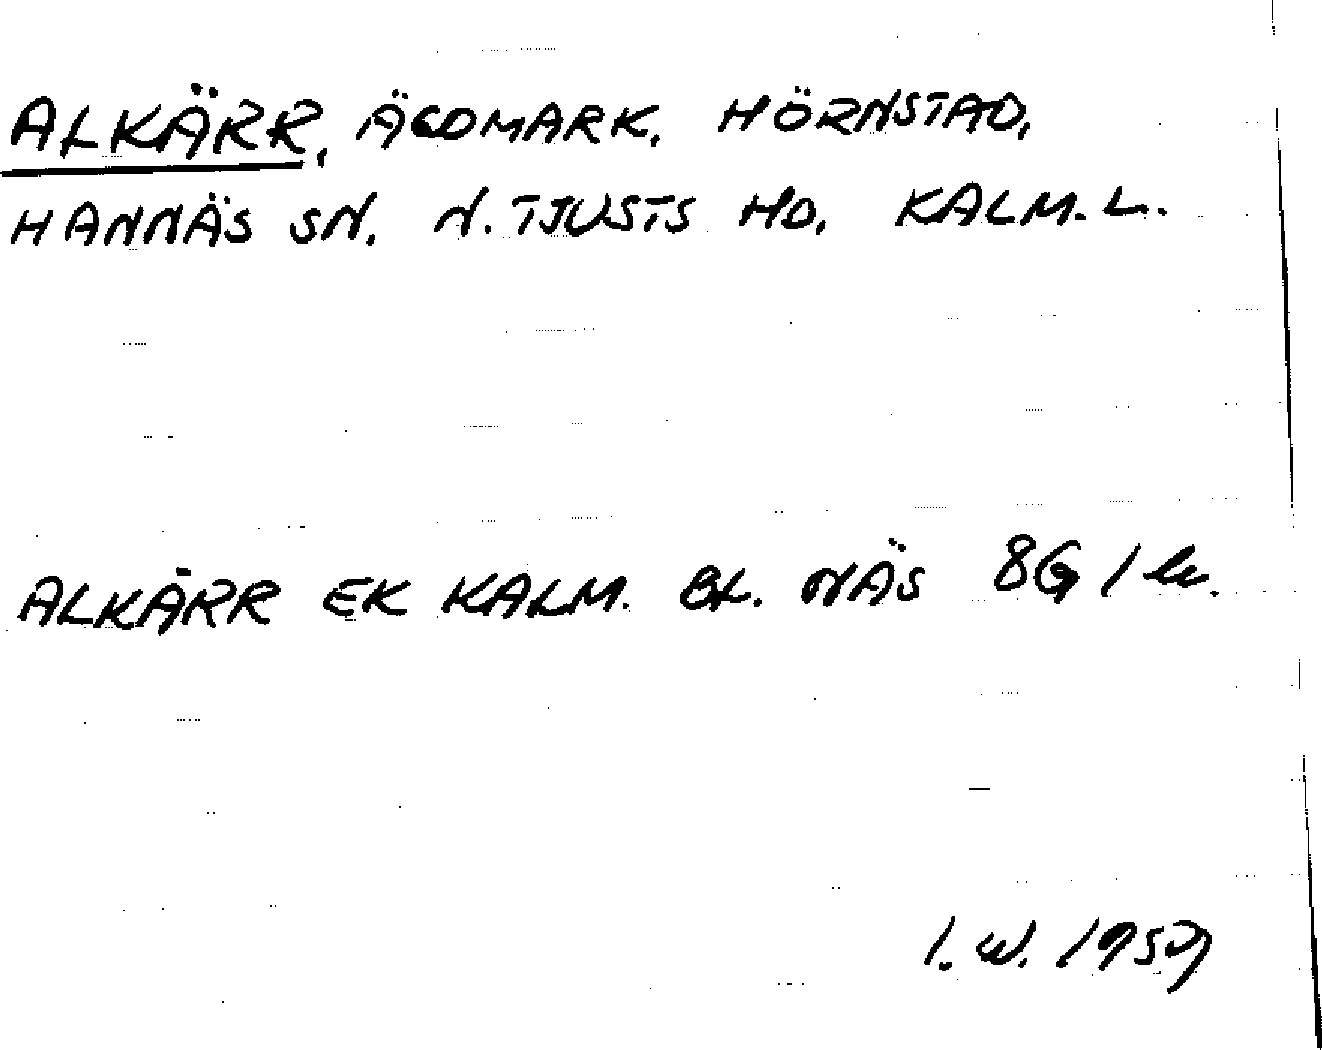 ALKÄRR, ÄGOMARK, HÖRNSTAD,
HANNÄS SN. N. TJUSTS HD. KALM. L.
ALKÄRR EK KALM. BL. NÄS 8G
I. W. 1959